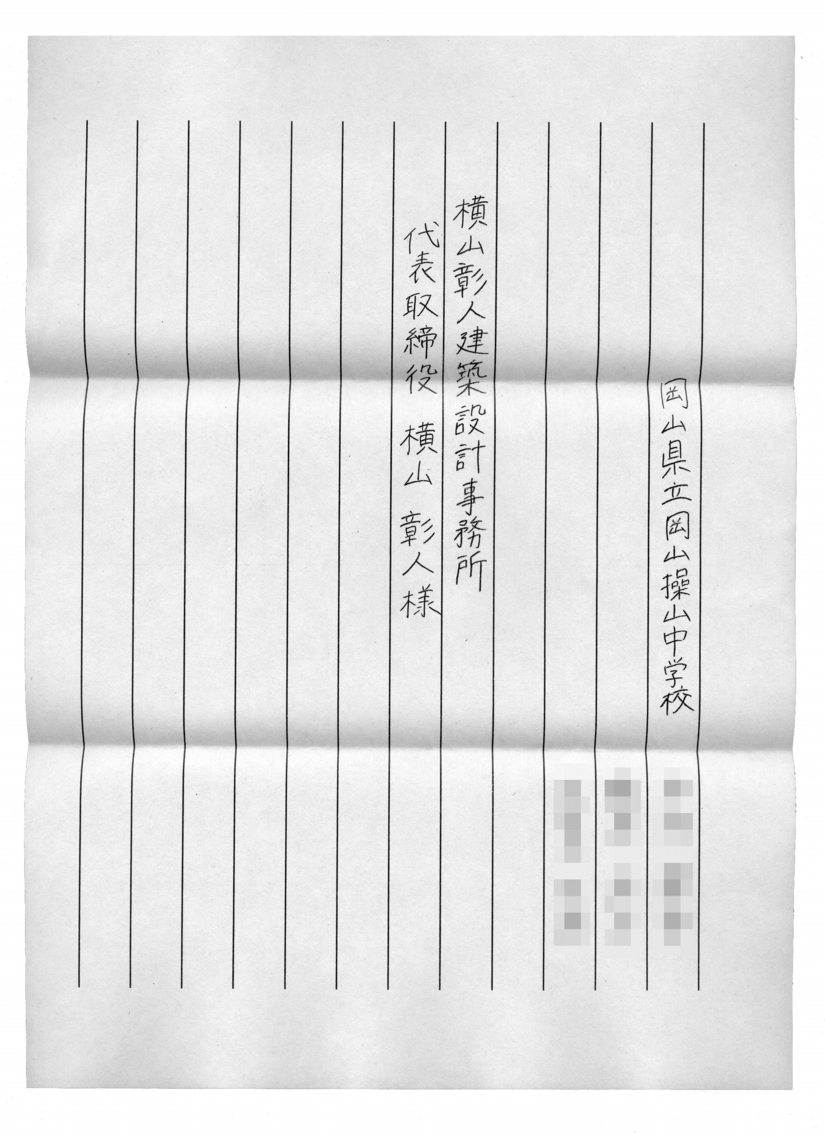 岡山県立岡山操山中学校
横山彰人建築設計事務所
代表取締役 横山 彰人様